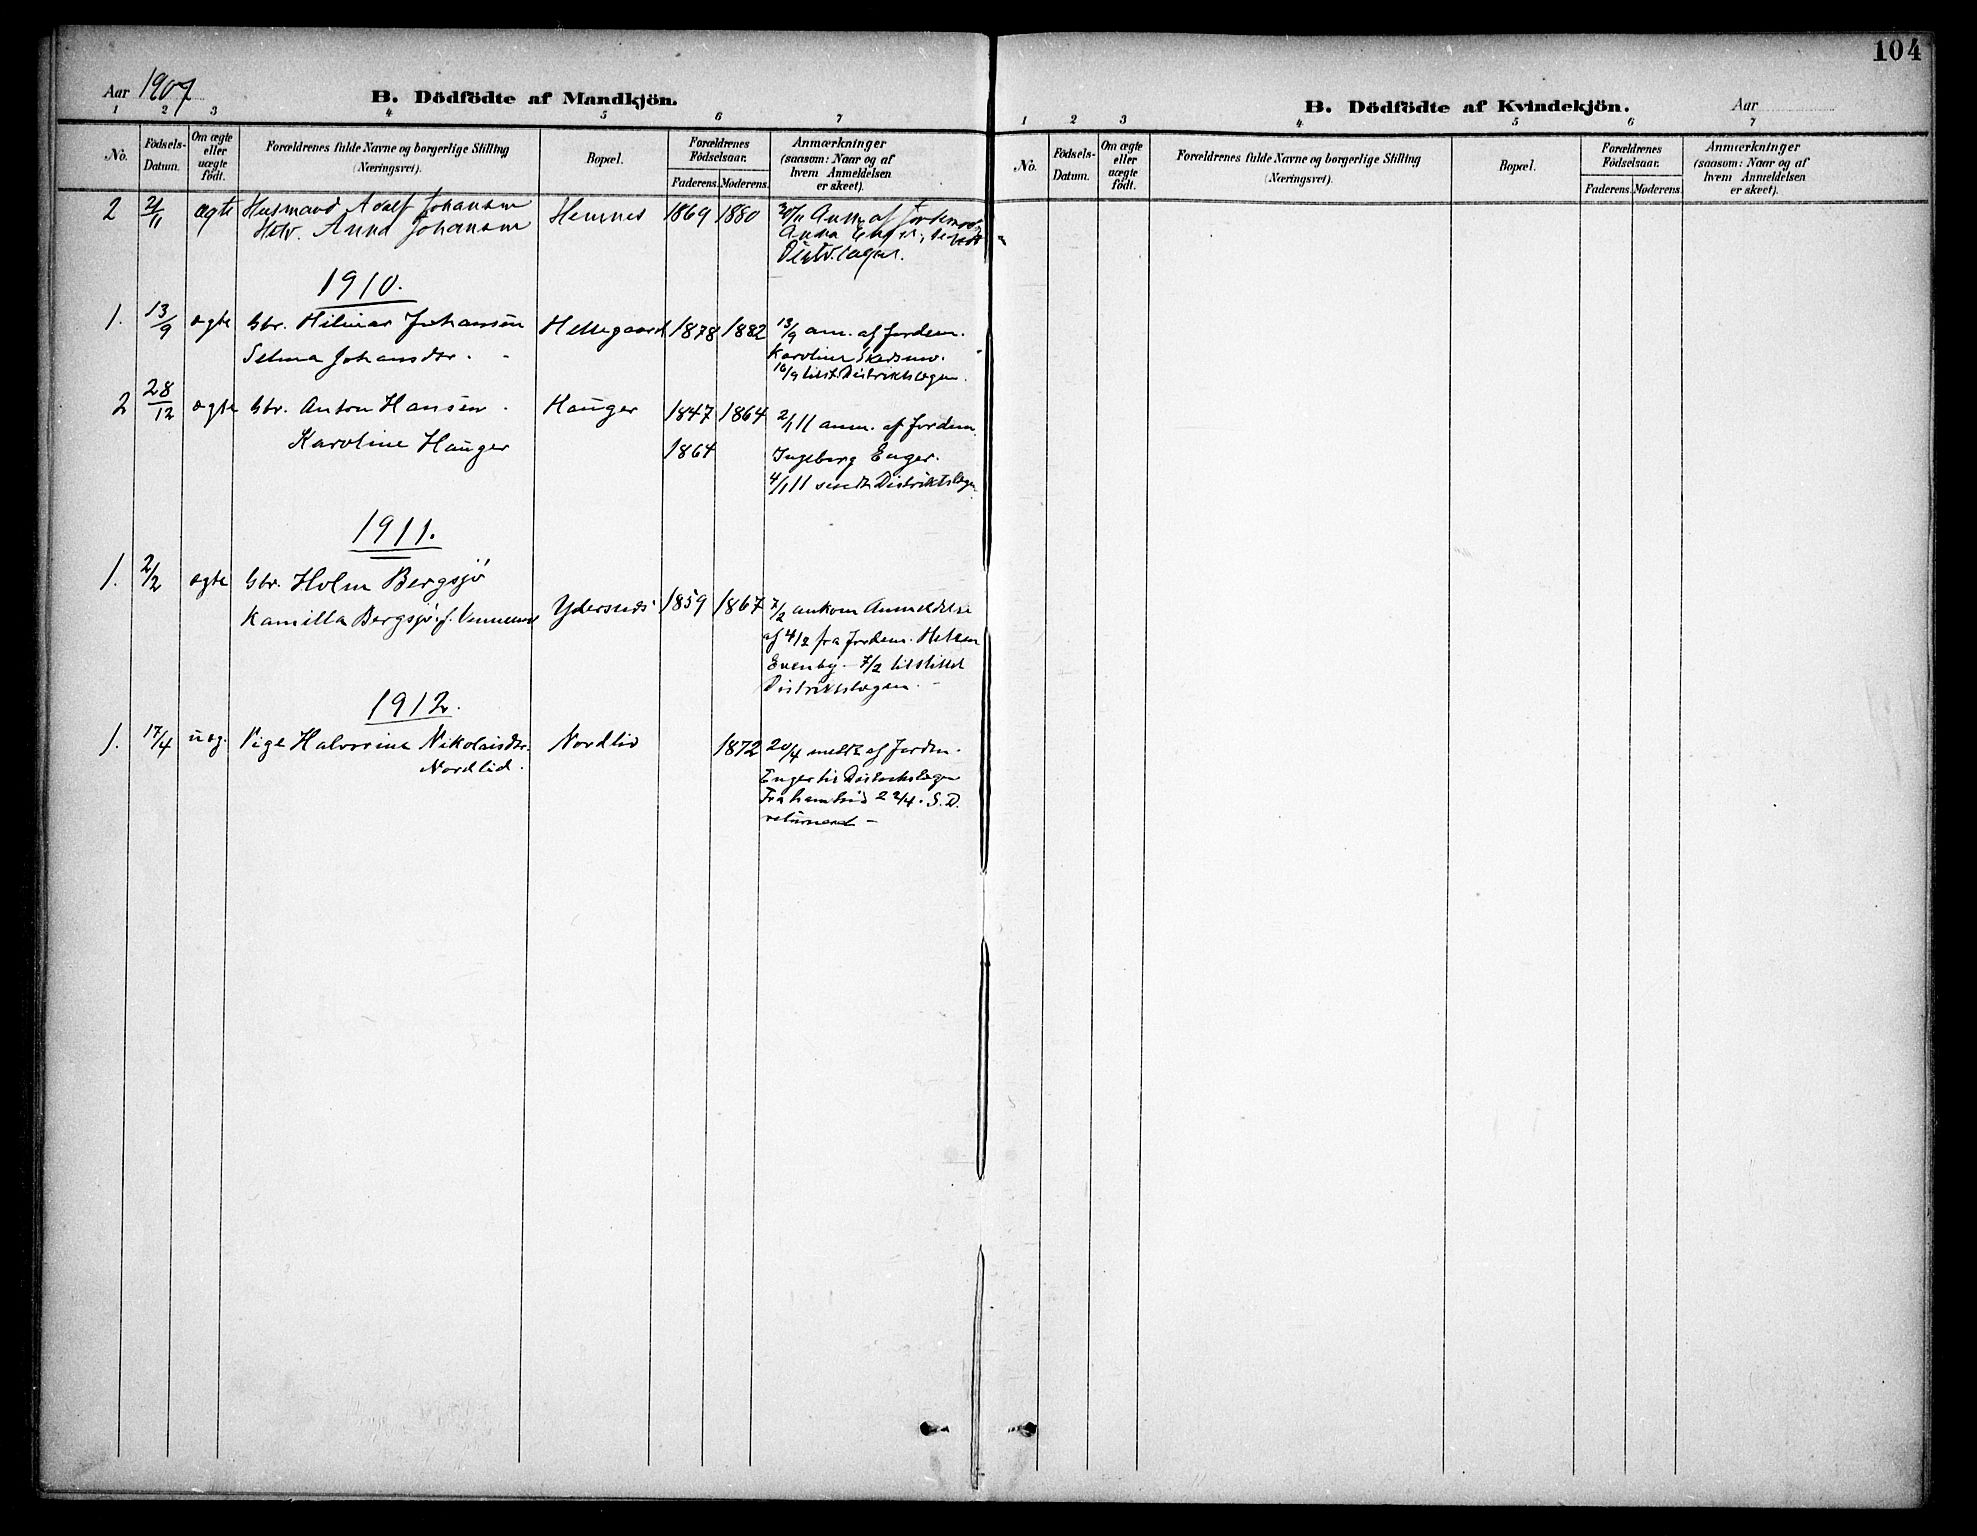 104
Aar 1907
B. Dödfödte af Mandkjön.
1 2 3 4 5 6 7
No.
Födsels-Datum.
Om ægte eller uægte födt.
Forældrenes fulde Navne og borgerlige Stilling (Næringsvei).
Bopæl.
Forældrenes Födselsaar.
Faderens. Moderens.
Anmærkninger (saasom: Naar og af hvem Anmeldelsen er skeet).
2 21/11 ægte Husmand Adolf Johansen Hemnes 1869 1880 20/11 Anm. af Jordemod.
Hstr. Anna Johansen Anna
Distr.lægen.
1910.
1. 13/9 ægte Gbr. Hilmar Johansen Hellegaard 1878 1882 13/9 anm. af Jordem.
Selma Johansdtr. Karoline
16/9 tilst. Distriktslægen.
2 28/12 ægte Gbr. Anton Hansen Hauger 1847 1864 2/1 11 anm. af Jordem.
Karoline Hauger 1864 Ingeborg Enger.
4/1 11 sendt Distriktslægen
1911.
1. 2/2 ægte Gbr. Holm Bergsjö
Kamilla Bergsjö f. Ydersnes 1859 1867 7/2 ankom Anmeldelse
af 4/2 fra Jordem.
Evenby. 7/2 tilstillet
Distriktslægen.
1912.
1. 17/4 uæg. Pige Halvorine Nikolaisdtr. Nordlid 1872 20/4 meldt af Jordm.
Nordlid. Enger til Distriktslægen
Fra 22/4. S. D.
returneret
B. Dödfödte af Kvindekjön.
Aar
1 2 3 4 5 6 7
No.
Födsels-Datum.
Om ægte eller uægte födt.
Forældrenes fulde Navne og borgerlige Stilling (Næringsvei).
Bopæl.
Forældrenes Födselsaar.
Faderens. Moderens.
Anmærkninger (saasom: Naar og af hvem Anmeldelsen er skeet).